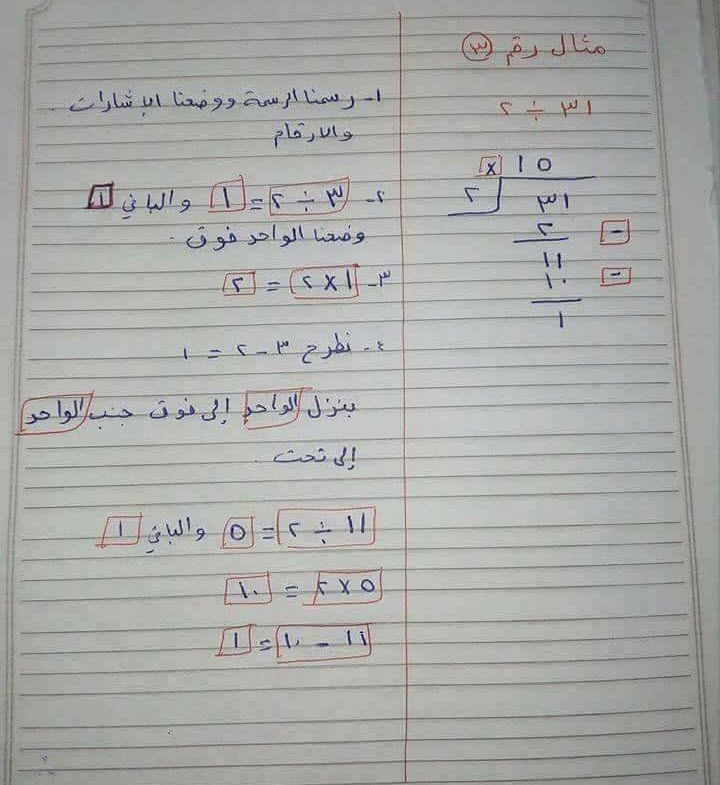 مثال رقم ٣
٣١ ÷ ٢
x ١ ٥
٢ ٣١
٢ -
١١
١٠ -
١
١- رسمنا الرسمة ووضعنا الإشارات .
والارقام
٢- ٣ ÷ ٢ = ١ والباقي ١
وضعنا الواحد فوق .
٣- ١ x ٢ = ٢
٤- نطرح ٣ - ٢ = ١
بنزل الواحد إلى فوق جنب الواحد
إلى تحت .
١١ ÷ ٢ = ٥ والباقي ١
٥ x ٢ = ١٠
١١ - ١٠ = ١